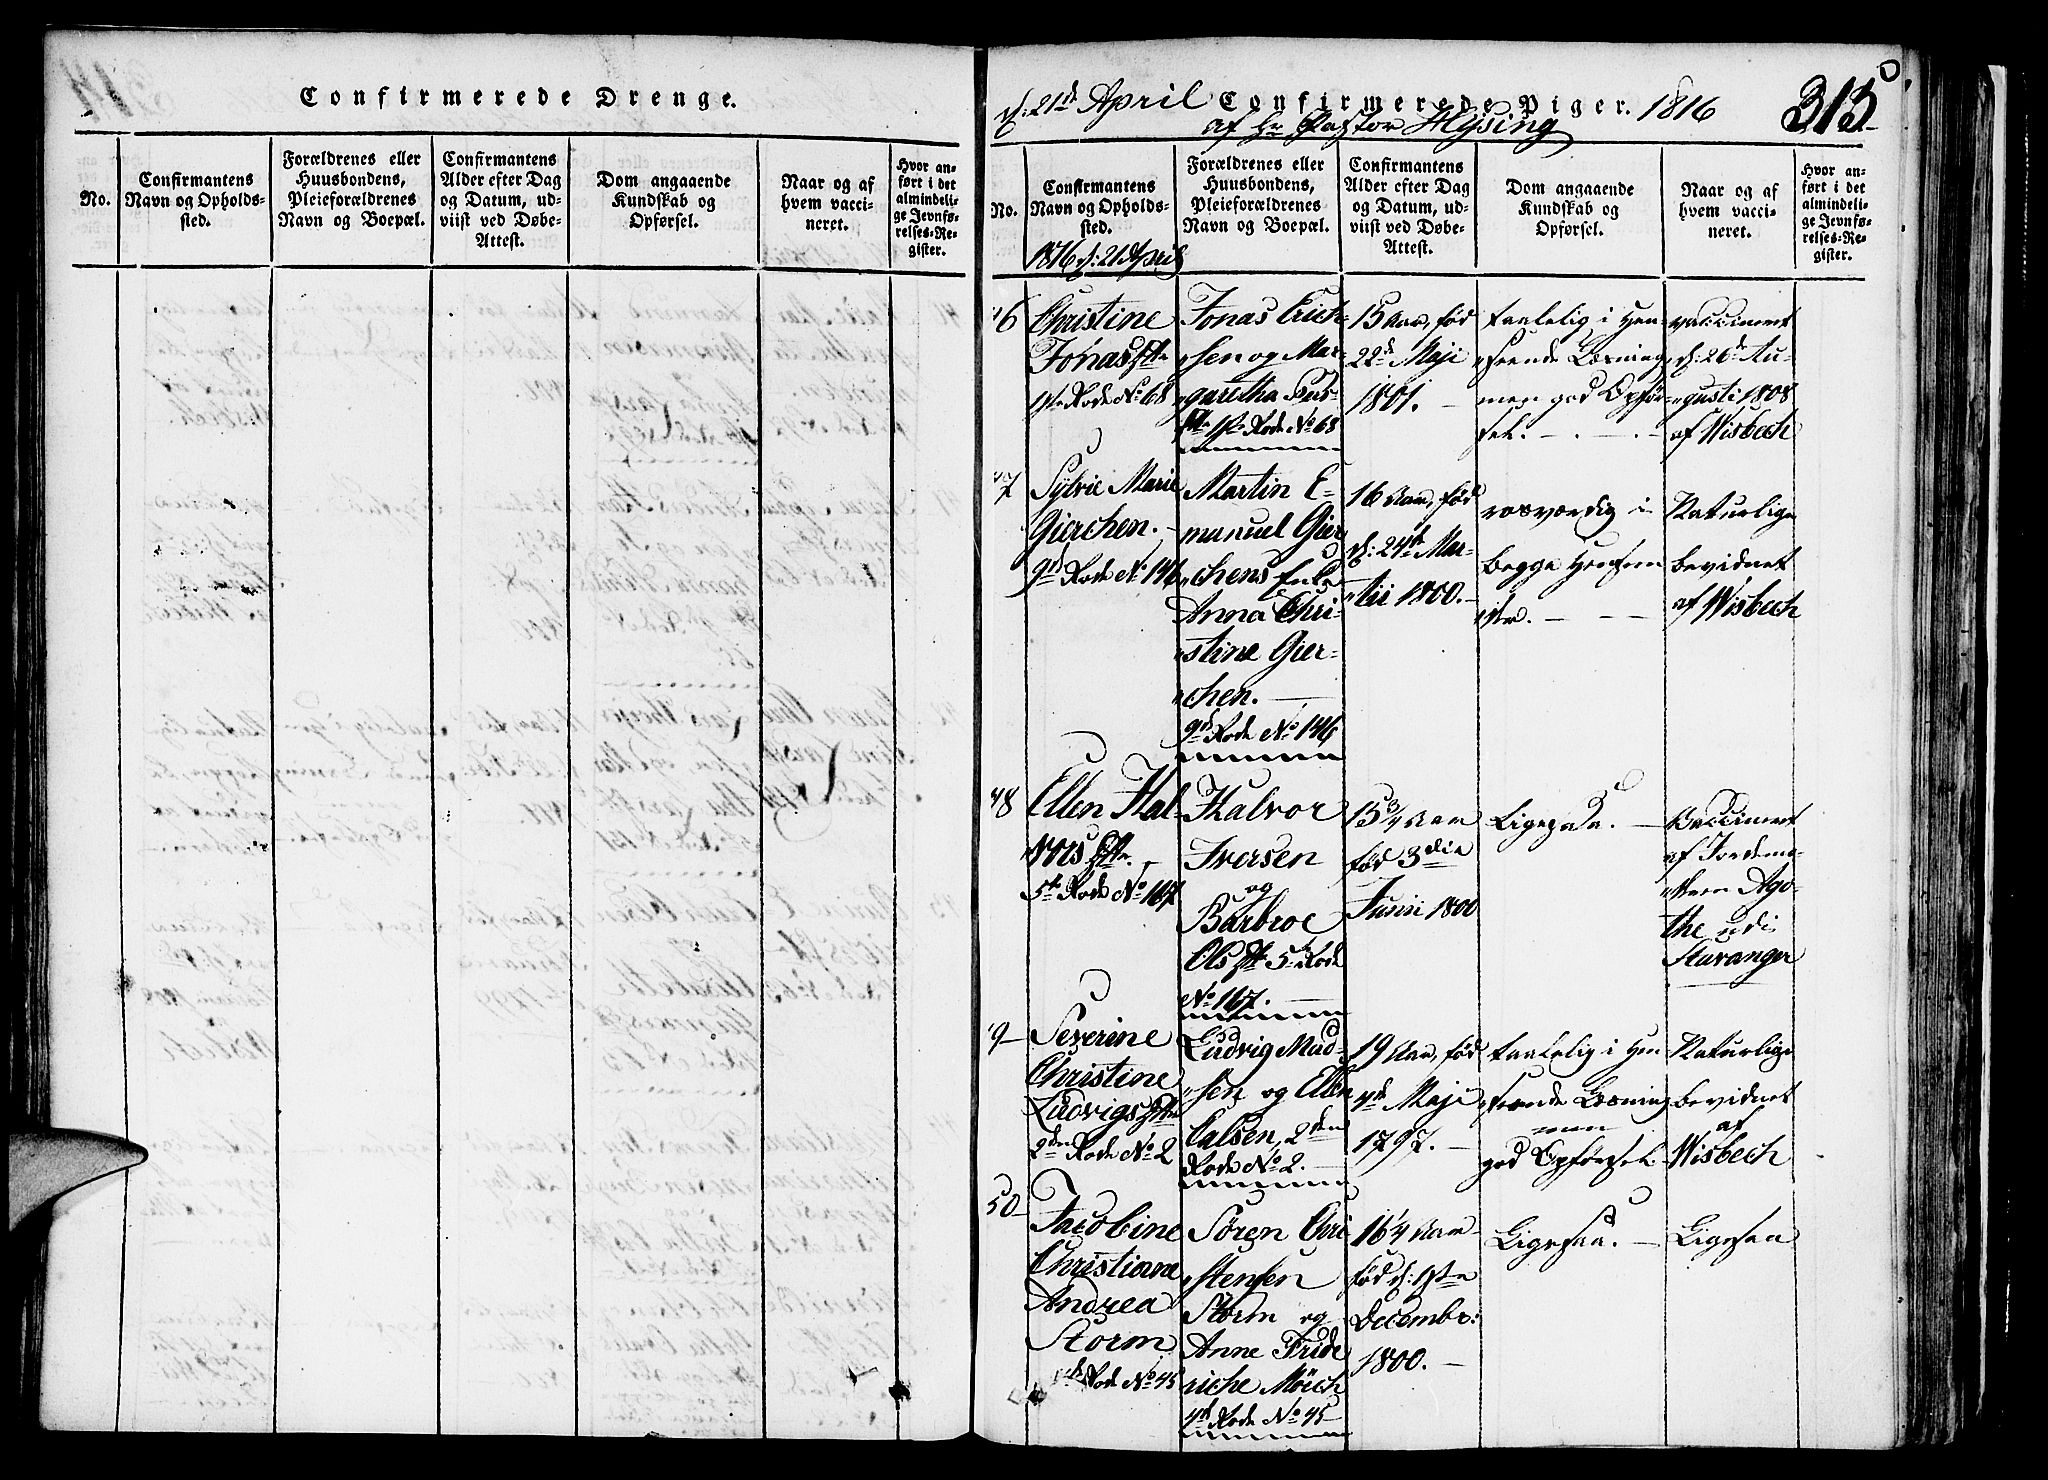 Confirmerede Drenge.
No.
Confirmantens
Navn og Opholds-
sted.
Forældrenes eller
Huusbondens,
Pleieforældrenes
Navn og Boepæl.
Confirmantens
Alder efter Dag
og Datum, ud-
viist ved Døbe-
Attest.
Dom angaaende
Kundskab og
Opførsel.
Naar og af
hvem vacci-
neret.
Hvor an-
ført i det
almindeli-
ge Jevnfø-
relses-Re-
gister.
d: 21de April Confirmerede Piger. 1816
af Hr Pastor Hysing
313
No.
Confirmantens
Navn og Opholds-
sted.
1816 d: 21 April
Forældrenes eller
Huusbondens,
Pleieforældrenes
Navn og Boepæl.
Confirmantens
Alder efter Dag
og Datum, ud-
viist ved Døbe-
Attest.
Dom angaaende
Kundskab og
Opførsel.
Naar og af
hvem vacci-
neret.
Hvor an-
ført i det
almindeli-
ge Jevnfø-
relses-Re-
gister.
46
Christine
Jonas
1ste Rode No 68
Jonas Erich-
sen og Mar-
garetha
1ste Rode No 68
15 Aar, fød
22de Maji
1801.
taalelig i Hen-
seende Læsning
men god Opfør-
sel.
vaccineret
d: 26de Au-
gusti 1808
af Wisbech
47
Sylvie Marie
Gierchen.
9de Rode No 146
Martin E-
manuel Gier-
chens Enke
Anna Chri-
stine Gier-
chen.
9de Rode No 146
16 Aar, fød
d: 24de Mar-
tii 1800.
rosværdig i
begge Henseen-
der.
Naturlige
bevidnet
af Wisbech
48
Ellen Hal-
vors
5te Rode No 167
Halvor
Iversen
og
Barbroe
Ols 5te Rode
No 167.
15 3/4 Aar
fød 3die
Junii 1800
Ligesaa.
Vaccineret
af Jordemo-
deren Ago-
the udi
Stavanger
9
Severine
Christine
Ludvigs
2den Rode No 2
Ludvig Mad-
sen og Ellen
Calsen, 2den
Rode No 2.
19 Aar, fød
7de Maji
1797.
taalelig i Hen
seende Læsning
men
god Opførsel.
Naturlige
bevidnet
af
Wisbech
50
Jacobine
Christiane
Andrea
Storm
Rode No 45
Søren Chri-
stensen
Storm og
Anne Fride
riche Mörch
4de Rode No 45
16 1/4 Aar
fød d: 1ste
Decembr:
1800.
Ligesaa.
Ligesaa